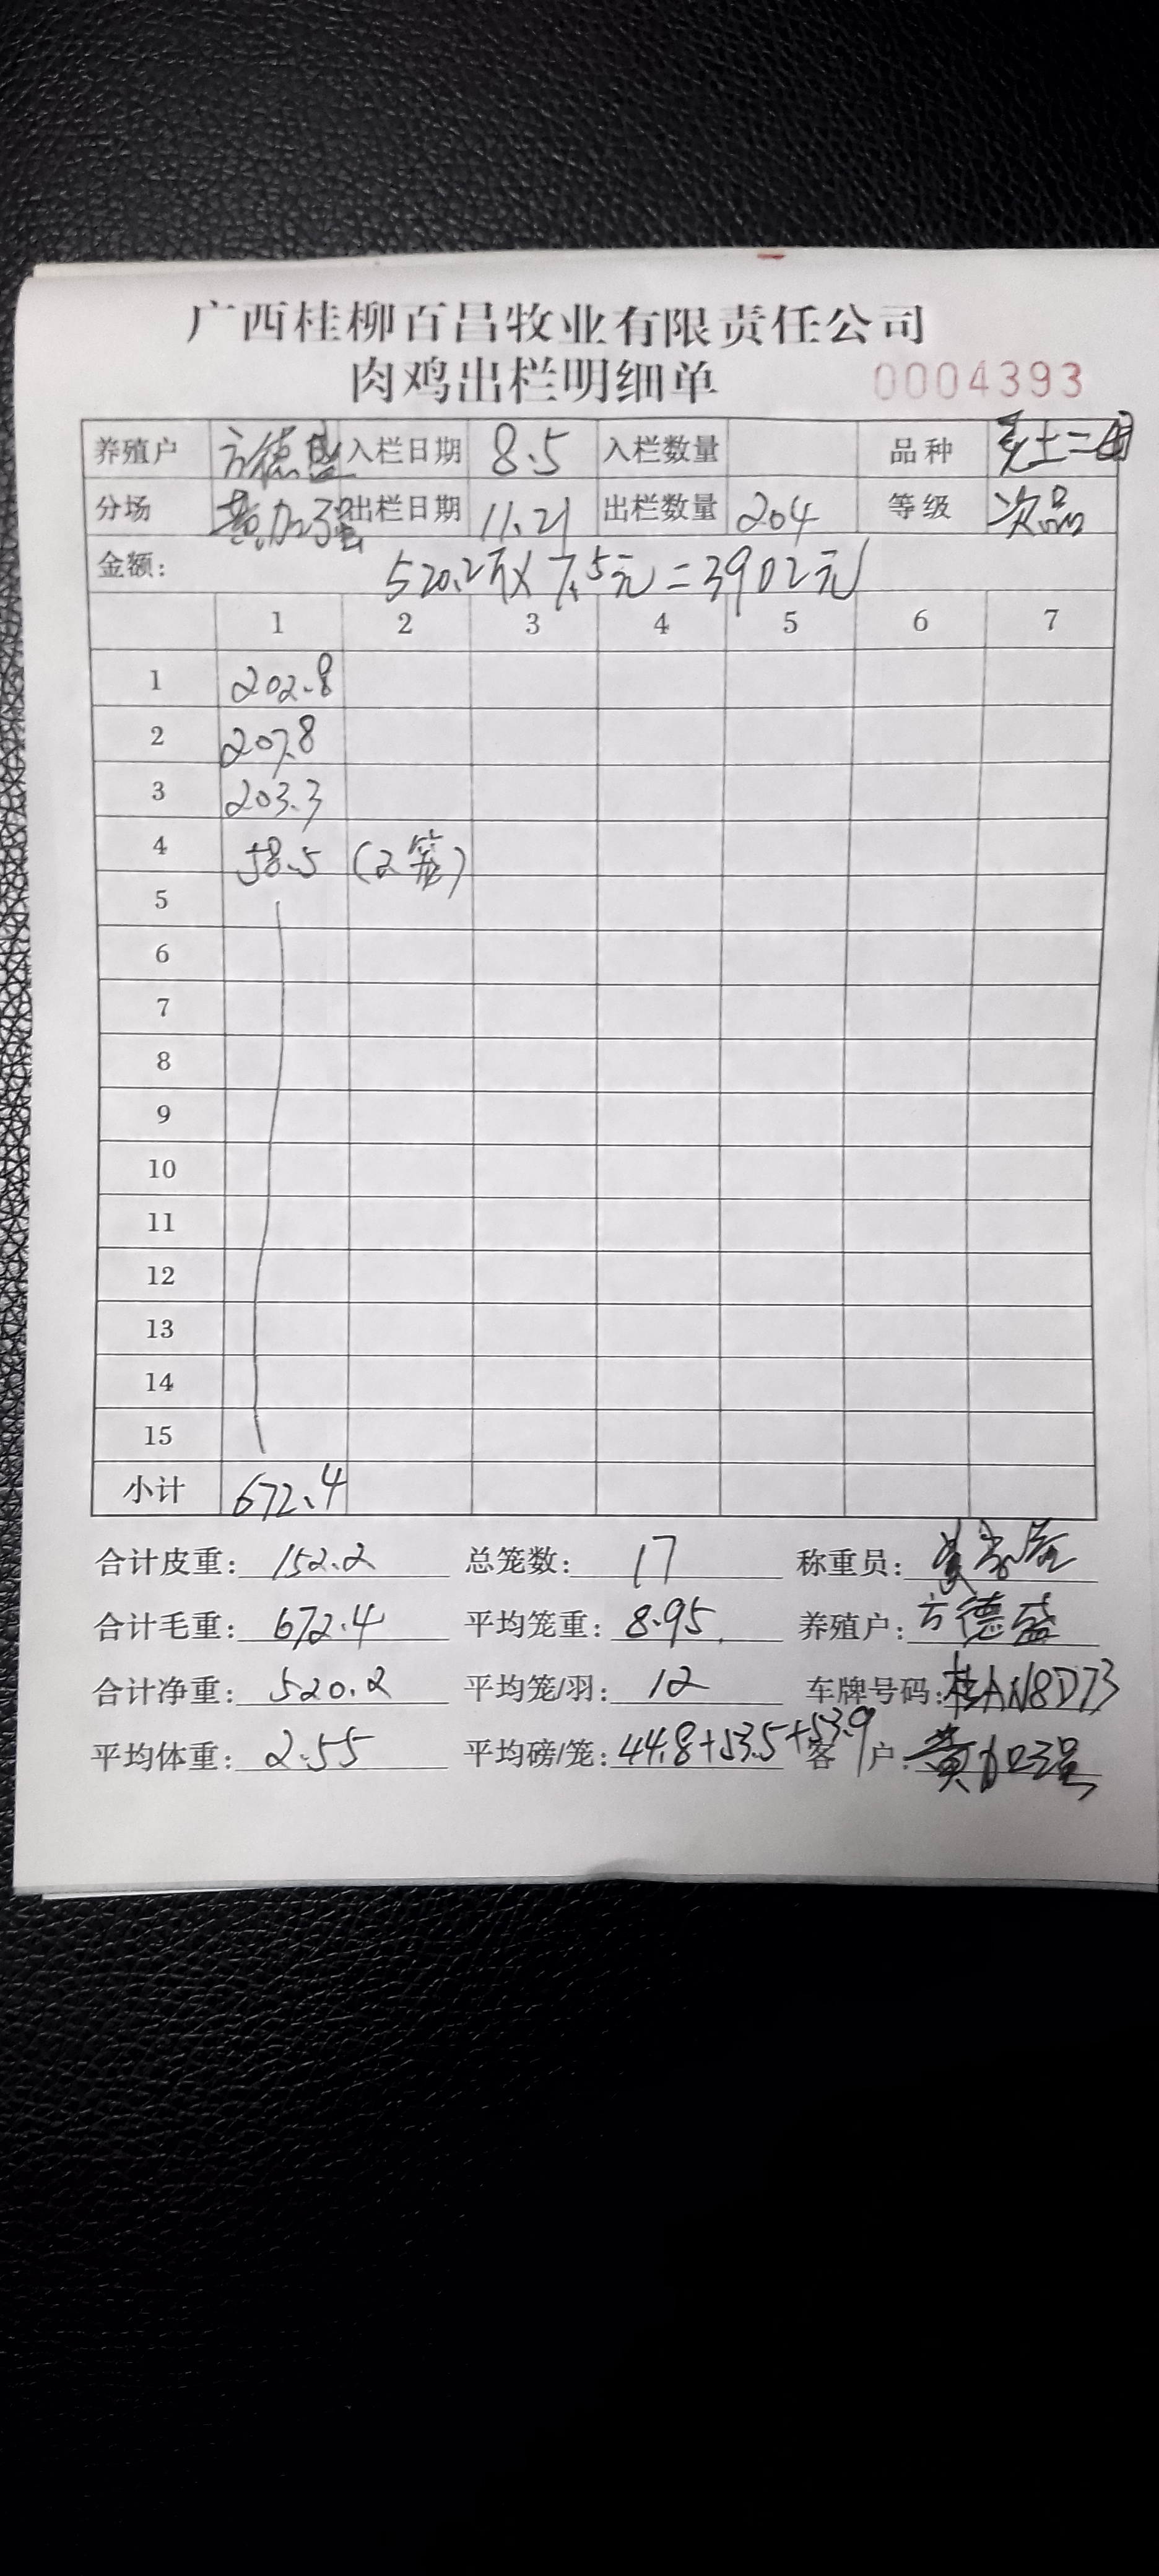 广西桂柳百昌牧业有限责任公司
肉鸡出栏明细单 0004393
养殖户 方德盛 入栏日期 8.5 入栏数量 品种 土二
分场 黄加强 出栏日期 11.21 出栏数量 204 等级 次品
金额: 520.2斤×7.5元=3902元
1 2 3 4 5 6 7
1 202.8
2 207.8
3 203.3
4 58.5 (2笼)
5
6
7
8
9
10
11
12
13
14
15
小计 672.4
合计皮重: 152.2 总笼数: 17 称重员:
合计毛重: 672.4 平均笼重: 8.95 养殖户: 方德盛
合计净重: 520.2 平均笼/羽: 12 车牌号码: 桂AN8D73
平均体重: 2.55 平均磅/笼: 44.8+53.5+53.9 客户: 黄加强